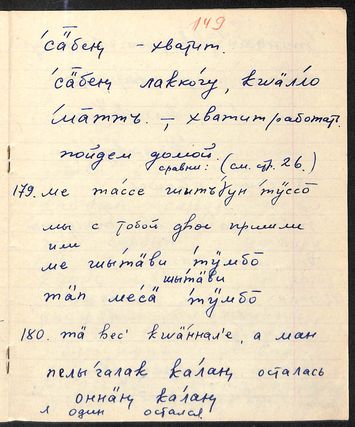 149
са̄бең – хватит.
са̄бең лаккогу, кwäллӓ
ма̄ттъ. –, хватит работат.
пойдем домой.
сравни: (см. стр. 26.)
179. ме та́ссе шытъ́ɣун тӱссо̄
мы с тобой двое пришли
или
ме шытӓви тӱмбо̄
шытӓви
тӓп месӓ тӱмбо̄
180. тӓ вес' кwӓннал'е, а ман
пелы́галак кала́ң осталась
оннӓң кала́ң
я один остался